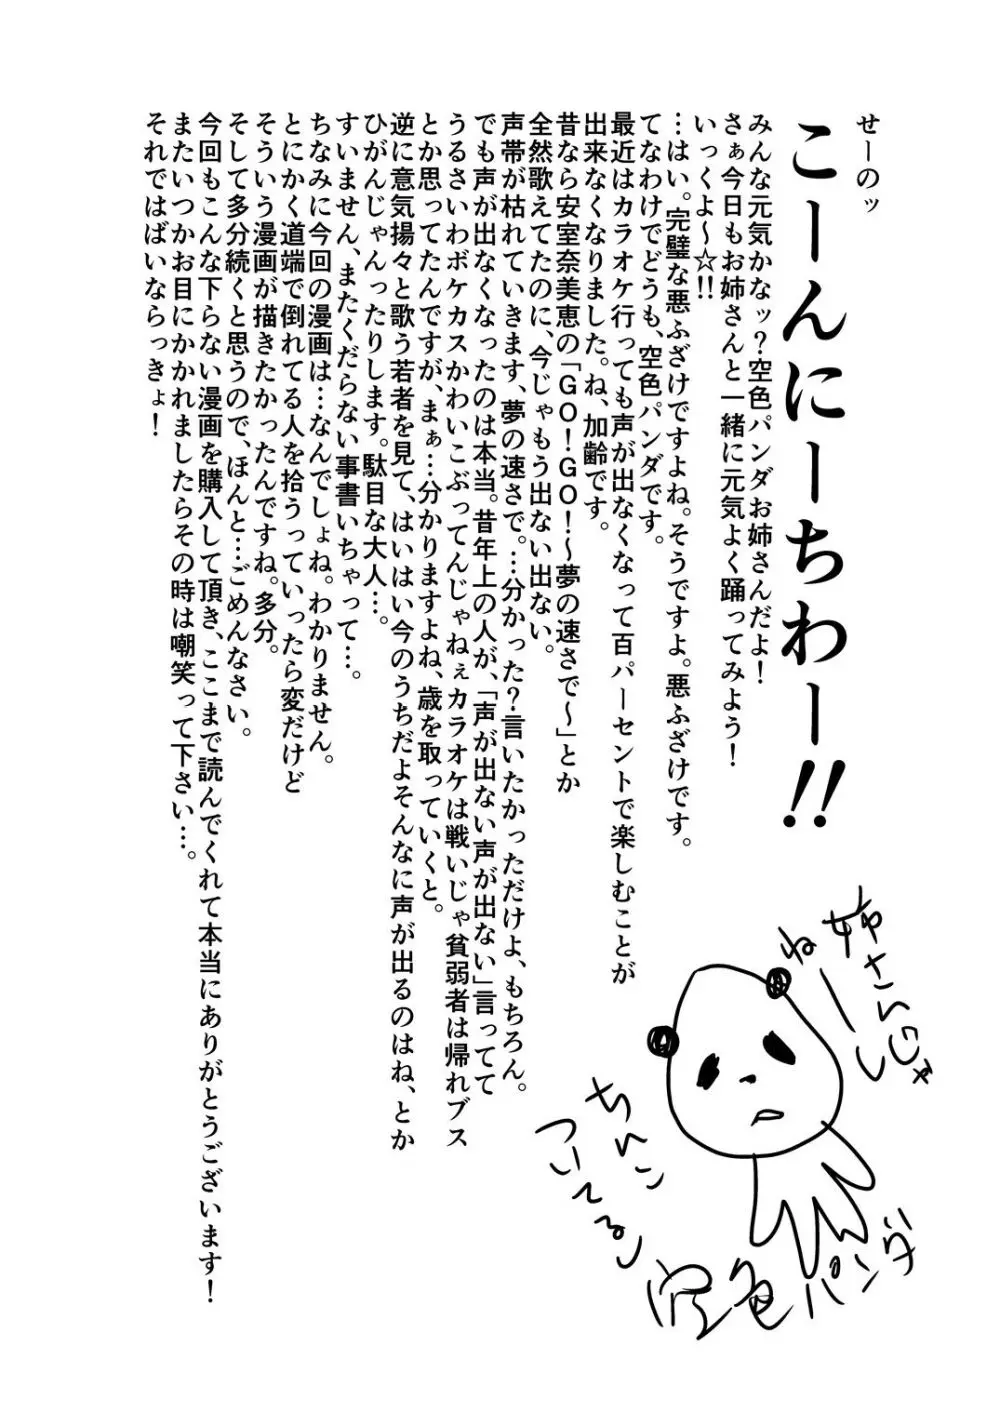 せーのッ
こーんにーちわー!!
みんな元気かなッ?空色パンダお姉さんだよ!
さぁ今日もお姉さんと一緒に元気よく踊ってみよう!
いっくよ〜☆!!
…はい。完璧な悪ふざけですよね。そうですよ。悪ふざけです。
てなわけでどうも、空色パンダです。
最近はカラオケ行っても声が出なくなって百パーセントで楽しむことが
出来なくなりました。ね、加齢です。
昔なら安室奈美恵の「GO!GO!〜夢の速さで〜」とか
全然歌えてたのに、今じゃもう出ない出ない。
声帯が枯れていきます、夢の速さで。…分かった?言いたかっただけよ、もちろん。
でも声が出なくなったのは本当。昔年上の人が、「声が出ない声が出ない」言ってて
うるさいわボケカスかわいこぶってんじゃねぇカラオケは戦いじゃ貧弱者は帰れブス
とか思ってたんですが、まぁ…分かりますよね、歳を取っていくと。
逆に意気揚々と歌う若者を見て、はいはい今のうちだよそんなに声が出るのはね、とか
ひがんじゃったりします。駄目な大人…。
すいません、またくだらない事書いちゃって…。
ちなみに今回の漫画は…なんでしょね。わかりません。
とにかく道端で倒れてる人を拾うっていったら変だけど
そういう漫画が描きたかったんですね。多分。
そして多分続くと思うので、ほんと…ごめんなさい。
今回もこんな下らない漫画を購入して頂き、ここまで読んでくれて本当にありがとうございます!
またいつかお目にかかれましたらその時は嘲笑って下さい…。
それではばいならっきょ!
姉さんじゃ
ねーし
ちんこ
ついてるし
空色パンダ